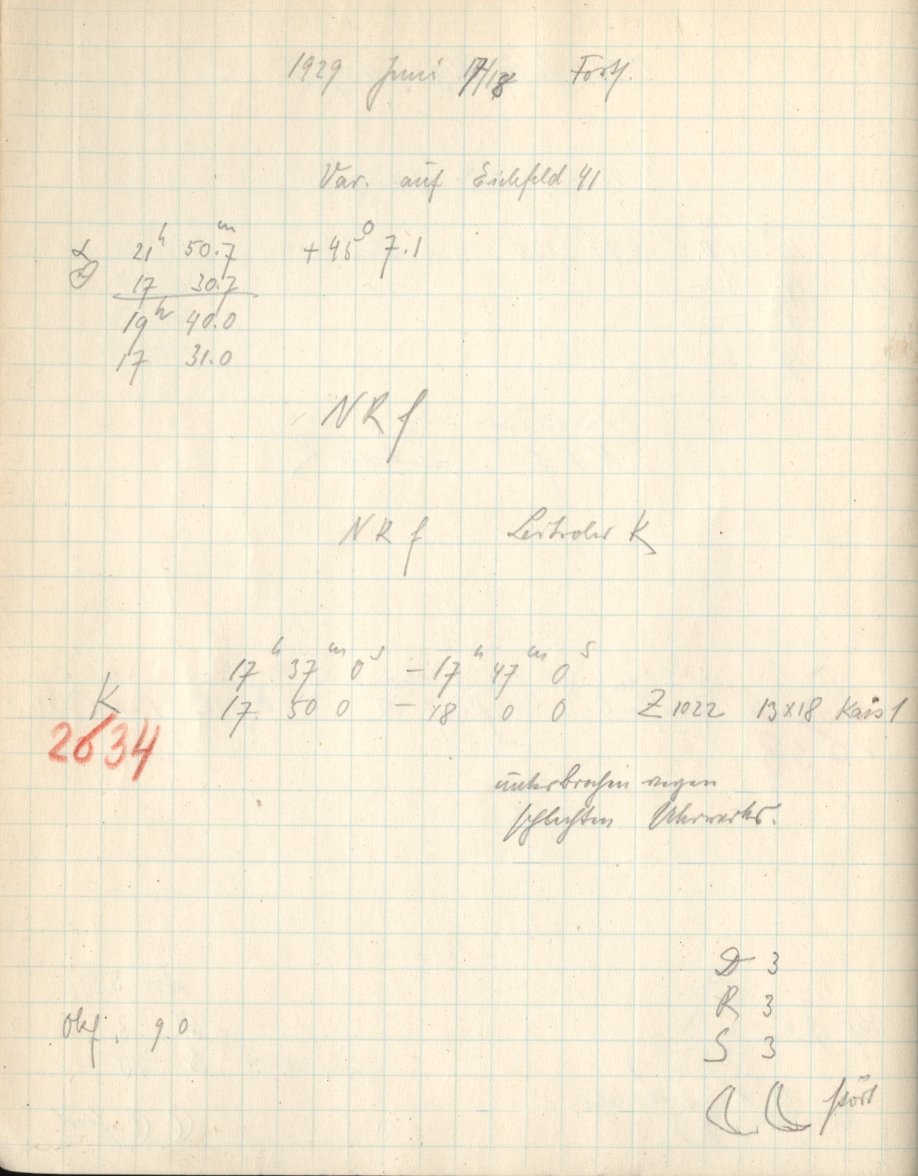 1929 Juni 17/18 Forts.
Var. auf Eichfeld 41
α 21h 50.m7 +45° 7.1
17 30.7
19h 40.0
17 31.0
NR f
NR f Leitrohr K
17h 37m 0s – 17h 47m 0s
K 17 50 0 – 18 0 0 Z 1022 13x18 Kais 1
2634
unterbrochen wegen
schlechten Uhrwerks.
D 3
R 3
Okf. 9.0
S 3
stört